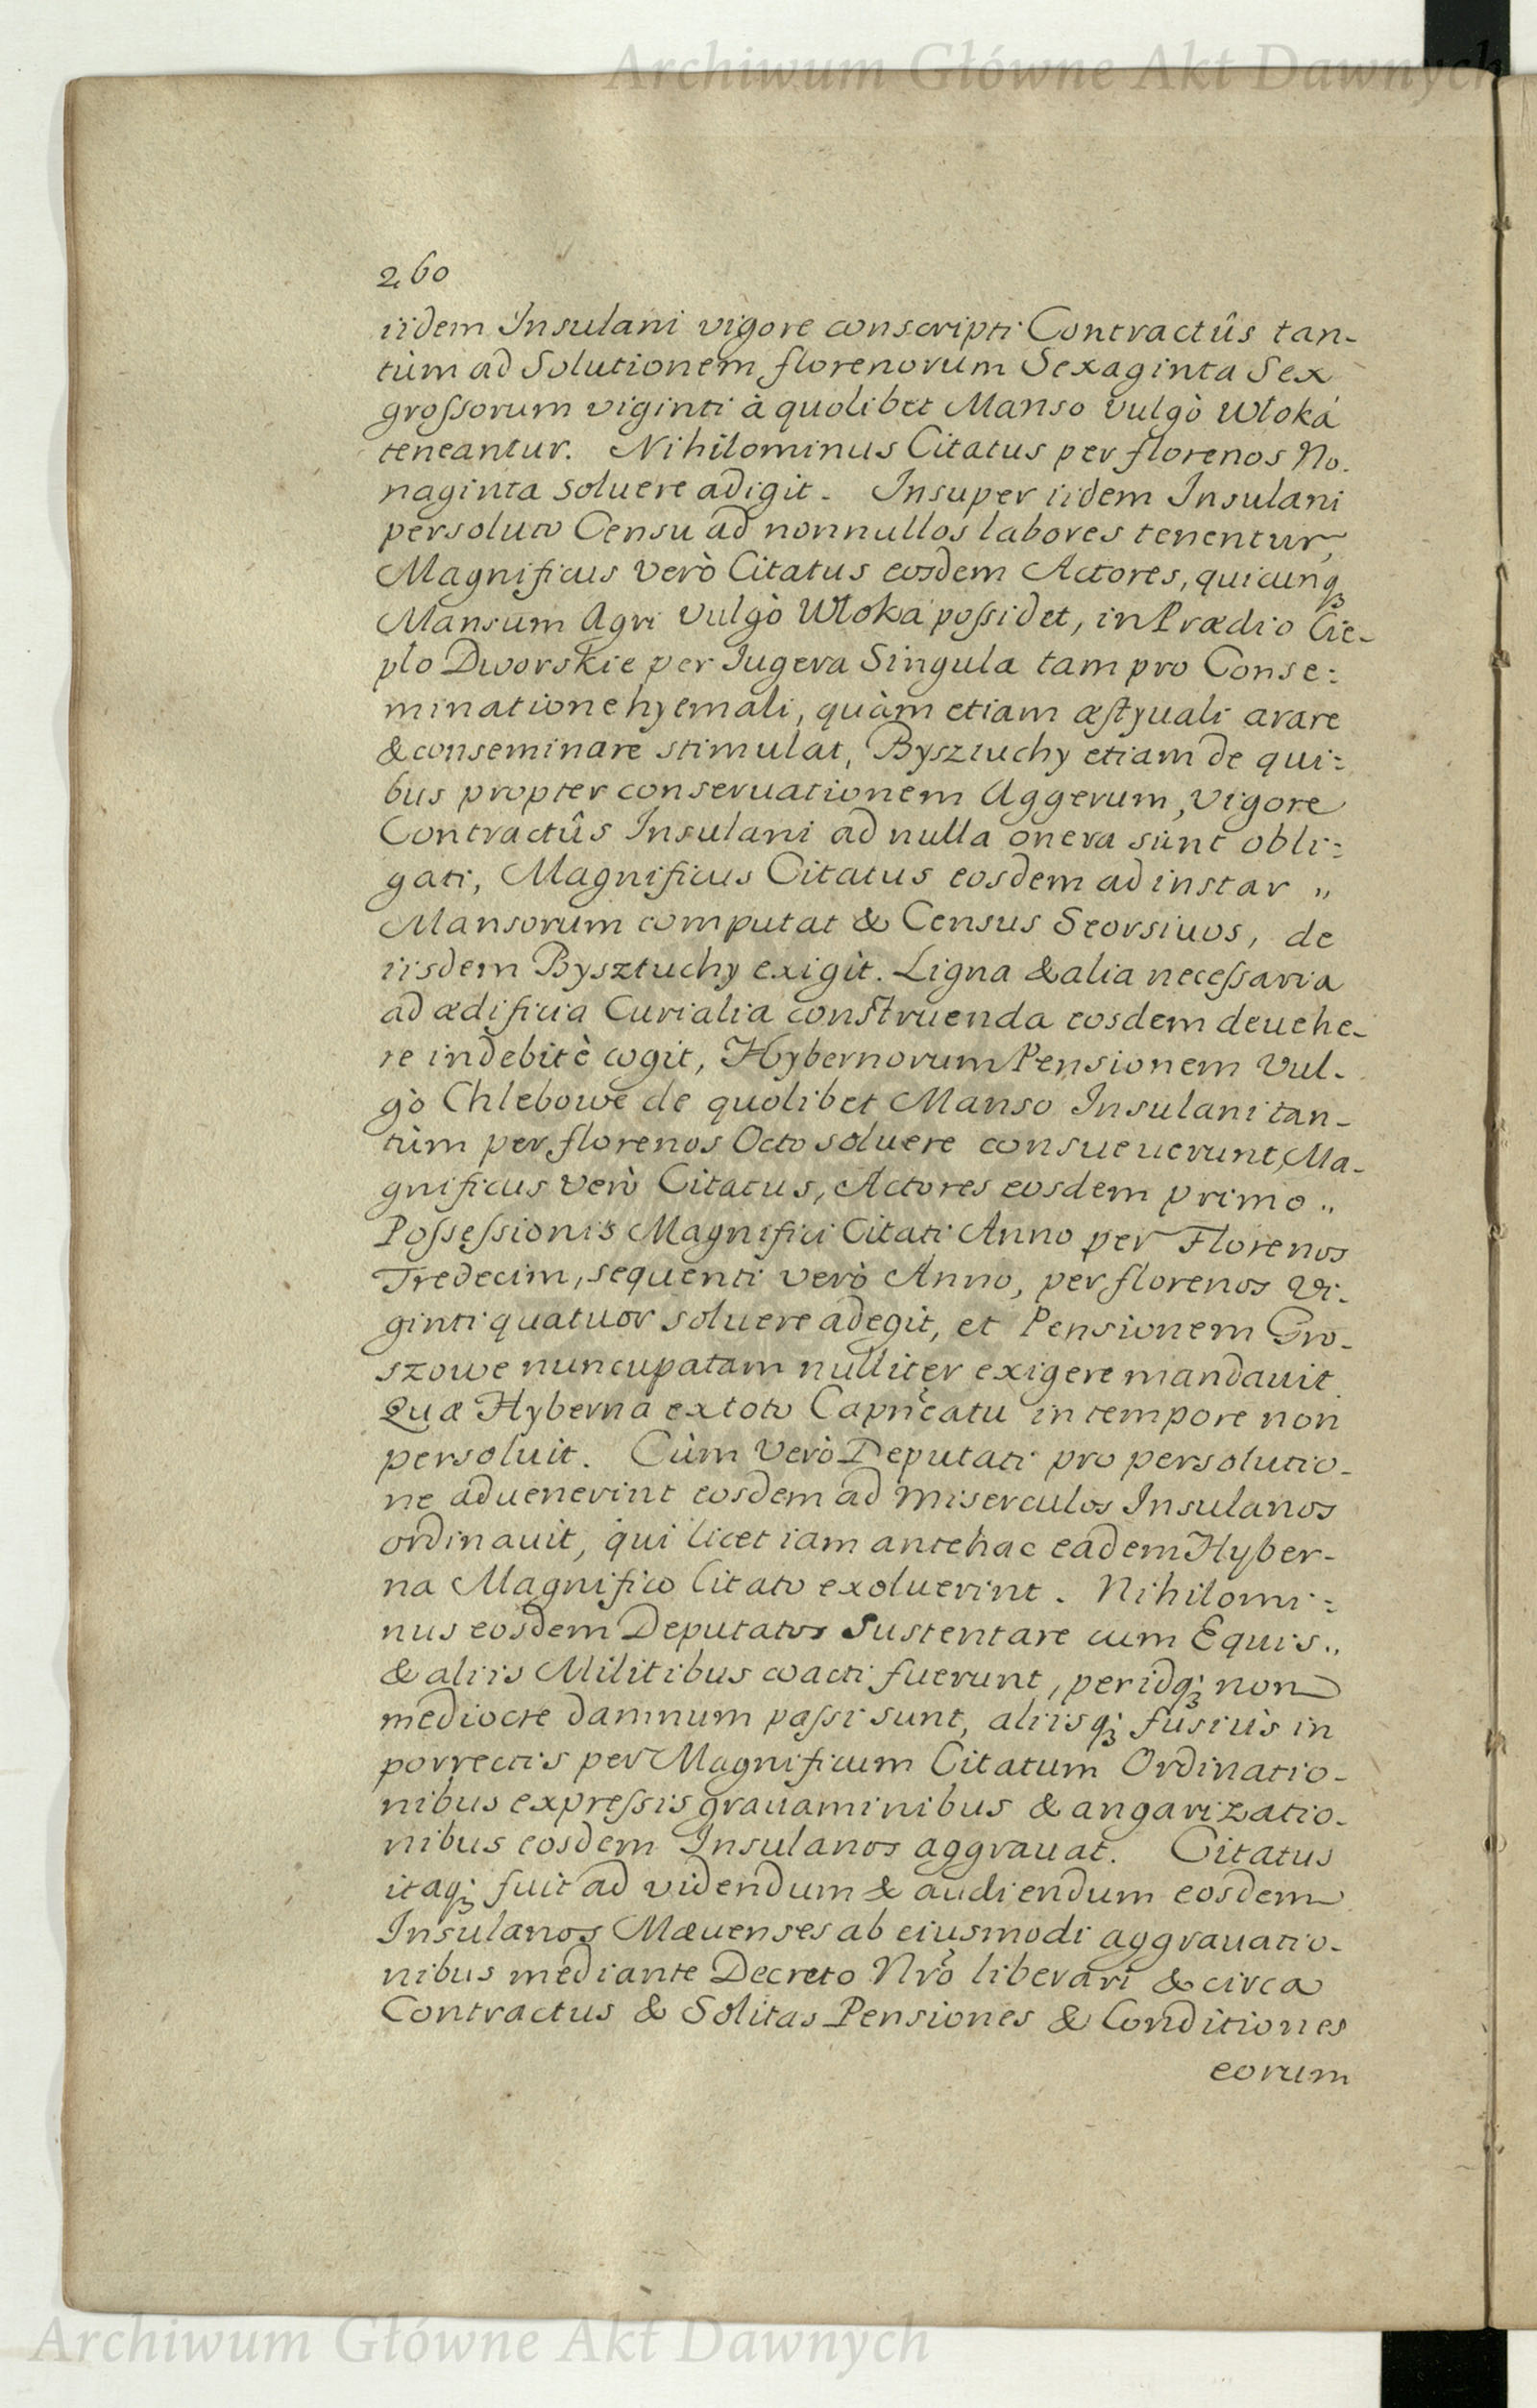 Archiwum Główne Akt Dawnych
260
iidem Insulani vigore conscripti Contractûs tan-
tùm ad Solutionem florenorum Sexaginta Sex
groſsorum viginti à quolibet Manso vulgò Włoká
teneantur. Nihilominus Citatus per florenos No-
naginta soluere adigit. Insuper iidem Insulani
persoluto Censu ad nonnullos labores tenentur,
Magnificus verò Citatus eosdem Actores, quicunq3
Mansum Agri vulgò Włoka poſsidet, in Prædio Cie-
pło Dworskie per Iugera Singula tam pro Conse:
minatione hyemali, quàm etiam æſtyuali arare
& conseminare stimulat, Bysztuchy etiam de qui:
bus propter conseruationem Aggerum, vigore
Contractûs Insulani ad nulla onera sunt obli:
gati, Magnificus Citatus eosdem ad instar „
Mansorum computat & Census Seorsiuos, de
iisdem Bysztuchy exigit. Ligna & alia neceſsaria
ad ædificia Curialia construenda eosdem deuehe-
re indebitè cogit, Hybernorum Pensionem vul-
gò Chlebowe de quolibet Manso Insulani tan-
tùm per florenos Octo soluere consueuerunt, Ma-
gnificus verò Citatus, Actores eosdem primo „
Poſseſsionis Magnifici Citati Anno per Florenos
Tredecim, sequenti verò Anno, per florenos Vi-
ginti quatuor soluere adegit, et Pensionem Gro-
szowe nuncupatam nulliter exigere mandauit.
Quæ Hyberna ex toto Capñeatu in tempore non
persoluit. Cùm verò Deputati pro persolutio-
ne aduenerint eosdem ad miserculos Insulanos
ordinauit, qui licet iam antehac eadem Hyber-
na Magnifico Citato exoluerint. Nihilomi:
nus eosdem Deputatos sustentare cum Equis „
& aliis Militibus coacti fuerunt, per idq3 non
mediocre damnum paſsi sunt, aliisq3 fusiùs in
porrectis per Magnificum Citatum Ordinatio-
nibus expreſsis grauaminibus & angarizatio-
nibus eosdem Insulanos aggrauat. Citatus
itaq3 fuit ad videndum & audiendum eosdem
Insulanos Mæuenses ab eiusmodi aggrauatio-
nibus mediante Decreto Nrõ liberari & circa
Contractus & Solitas Pensiones & Conditiones
eorum
Archiwum Główne Akt Dawnych